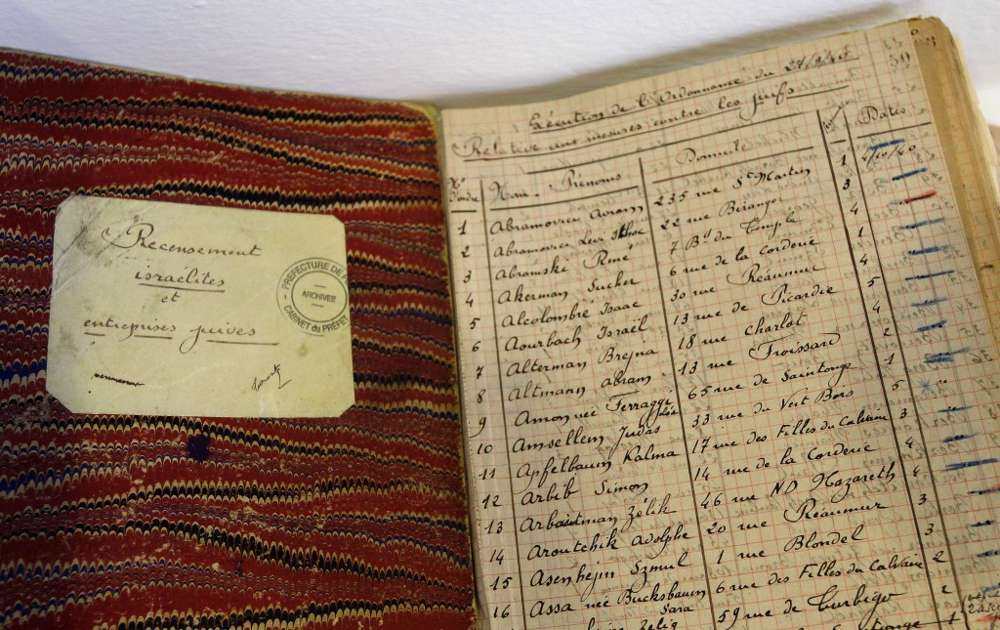 Recensement
israélites
et
entreprises juives
PRÉFECTURE DE
ARCHIVES
CABINET du PRÉFET
Exécution de l'Ordonnance du
Relative aux mesures contre les juifs
Nom Prénoms Domicile Dates
1 Abramovici Avram 235 rue St Martin 1 4/10/40
2 Abramovici Leur 22 rue Béranger 3
3 Abramski René 7 Bd du Temple 4
4 Akerman Sucker 6 rue de la Corderie 1
5 Alcolombre Isaac 30 rue Réaumur 4
6 Aourbach Israël 13 rue de Picardie 5
7 Alterman Brejna 18 rue Charlot 4
8 Altmann Abram 13 rue Froissard 2
9 Amon née Ferraggi 65 rue de Saintonge 1
10 Amsellem Judas 33 rue du Vert Bois 5
11 Apfelbaum Kalma 17 rue des Filles du Calvaire 3
12 Arbib Simon 14 rue de la Corderie 4
13 Arbaitman Zélik 46 rue ND Nazareth 4
14 Aroutchik Adolphe 20 rue Réaumur 3
15 Asenhejm Szmul 1 rue Blondel 3
16 Assa née Bucksbaum 6 rue des Filles du Calvaire 2
Sara 59 rue de Turbigo 2
Zélig